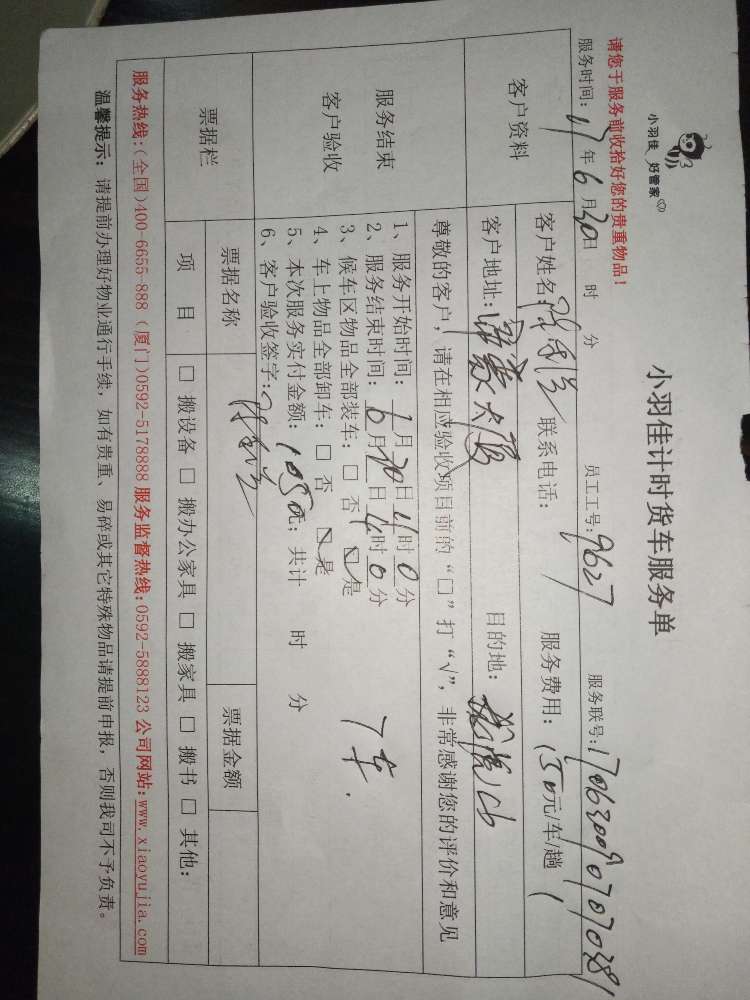 小羽佳 好管家
小羽佳计时货车服务单
请您于服务前收拾好您的贵重物品！
服务时间：17年6月30日 时 分 员工工号：9627 服务联号：
客户资料
客户姓名： 联系电话： 服务费用：150元/车/趟
客户地址： 大厦 目的地：
服务结束
客户验收
尊敬的客户，请在相应验收项目前的“口”打“√”，非常感谢您的评价和意见
1、服务开始时间： 月 日 时0分
2、服务结束时间：6月 日 时0分
3、候车区物品全部装车：□ 否 ☑是
4、车上物品全部卸车：□ 否 ☑是
5、本次服务实付金额：1050元；共计 时 分 7车.
6、客户验收签字：
票据栏
票据名称 票据金额
项 目 □ 搬设备 □ 搬办公家具 □ 搬家具 □ 搬书 □ 其他：
服务热线：（全国）400-6655-888 （厦门）0592-5178888 服务监督热线：0592-5888123 公司网站：www.xiaoyujia.com
温馨提示： 请提前办理好物业通行手续，如有贵重、易碎或其它特殊物品请提前申报，否则我司不予负责。